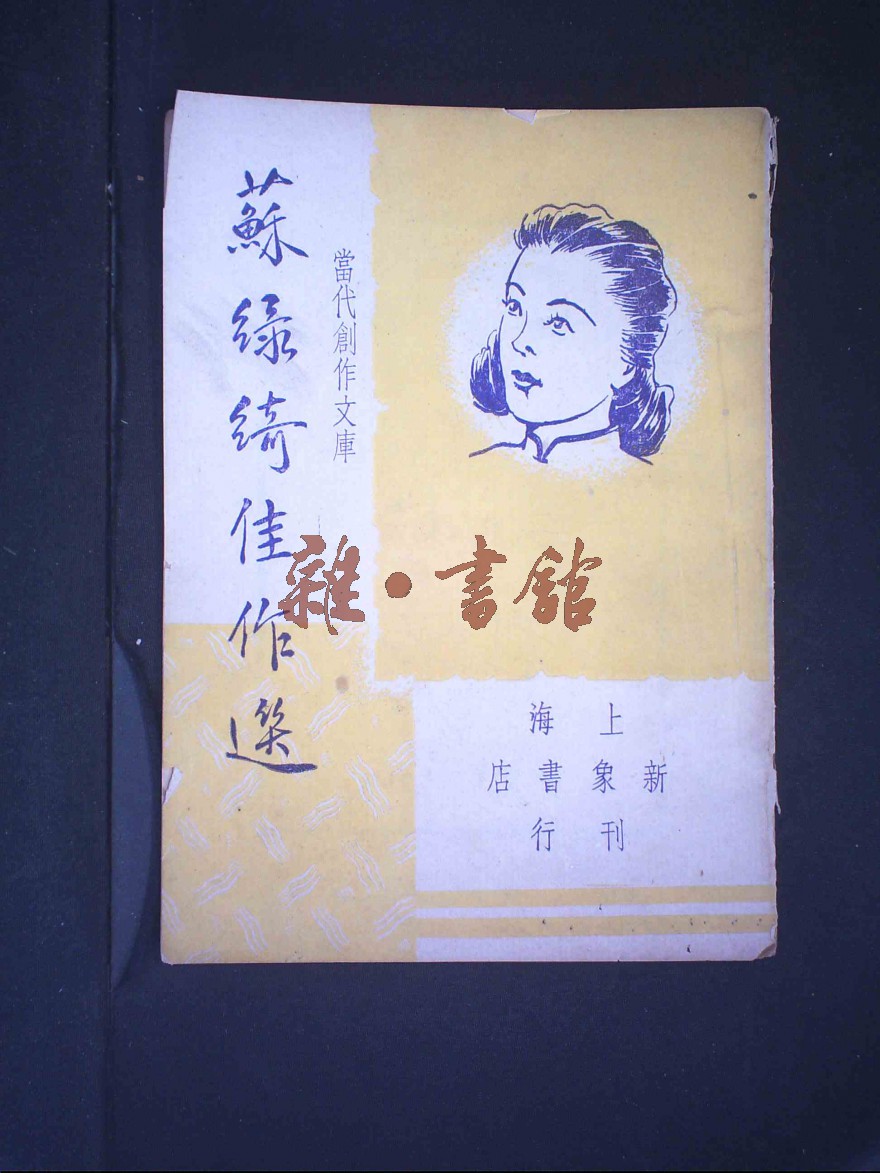 蘇綠綺佳作選
當代創作文庫
雜·書館
上海
新象書店
刊行